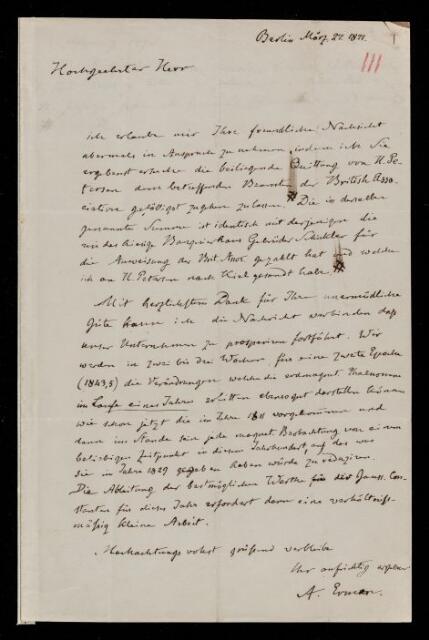 Berlin März 27. 1871.
III
Hochgeehrter Herr
ich erlaube mir Ihre freundliche Nachsicht
abermals in Anspruch zu nehmen, indem ich Sie
ergebenst ersuche die beiliegende Quittung von H. Pe-
tersen dem betreffenden Beamten der British Asso-
ciation gefälligst zugehn zu lassen. Die in derselben
genannte Summe ist identisch mit derjenigen die
mir das hiesige Banquierhaus Gebrüder Schickler für
die Anweisung der Brit. Assoc. gezahlt hat und welche
ich an H. Petersen nach Kiel gesandt habe.
Mit herzlichstem Dank für Ihre unermüdliche
Güte kann ich die Nachricht verbinden daß
unser Unternehmen zu prosperiren fortfährt. Wir
werden in zwei bis drei Wochen für eine zweite Epoche
(1843,5) die Veränderungen welche die erdmagnet. Phaenomene
im Laufe eines Jahres erlitten ebensogut darstellen können
wie schon jetzt die im Jahre vorgekommenen und
dann im Stande sein jede magnet. Beobachtung von einem
beliebigen Zeitpunkt in diesem Jahrhundert, auf das was
sie im Jahre 1829 gegeben haben würde zu reduziren.
Die Ableitung der bestmöglichen Werthe für die Gauss. Con-
stanten für dieses Jahr erfordert dann eine verhältniß-
mäßig kleine Arbeit.
Hochachtungsvollst grüßend verbleibe
Ihr aufrichtig ergebener
A. Erman.